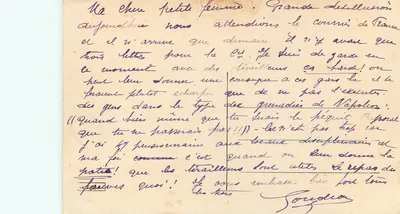 Ma cher petite femme! Grande désillusion
aujourd'hui nous attendions le courrier de France
et il n'arrive que demain. Il n'y avait que
trois lettres pour le Ct. Je suis de garde en
ce moment avec des tirailleurs ça barde! on
peut leur donner une consigne à ces gars là et ils se
feraient plutôt que de ne pas l'exécuter.
des gens dans le type des grenadiers de Napoléon:
((quand bien même que tu serais le petit Caporal
que tu ne passerais pas!)) -
j'ai 47 prisonniers aux locaux disciplinaires et
ma foi c'est quand on leur donne la
! que les tirailleurs sont utiles. Le repas des
fauves quoi! Je vous embrasse bien fort tous